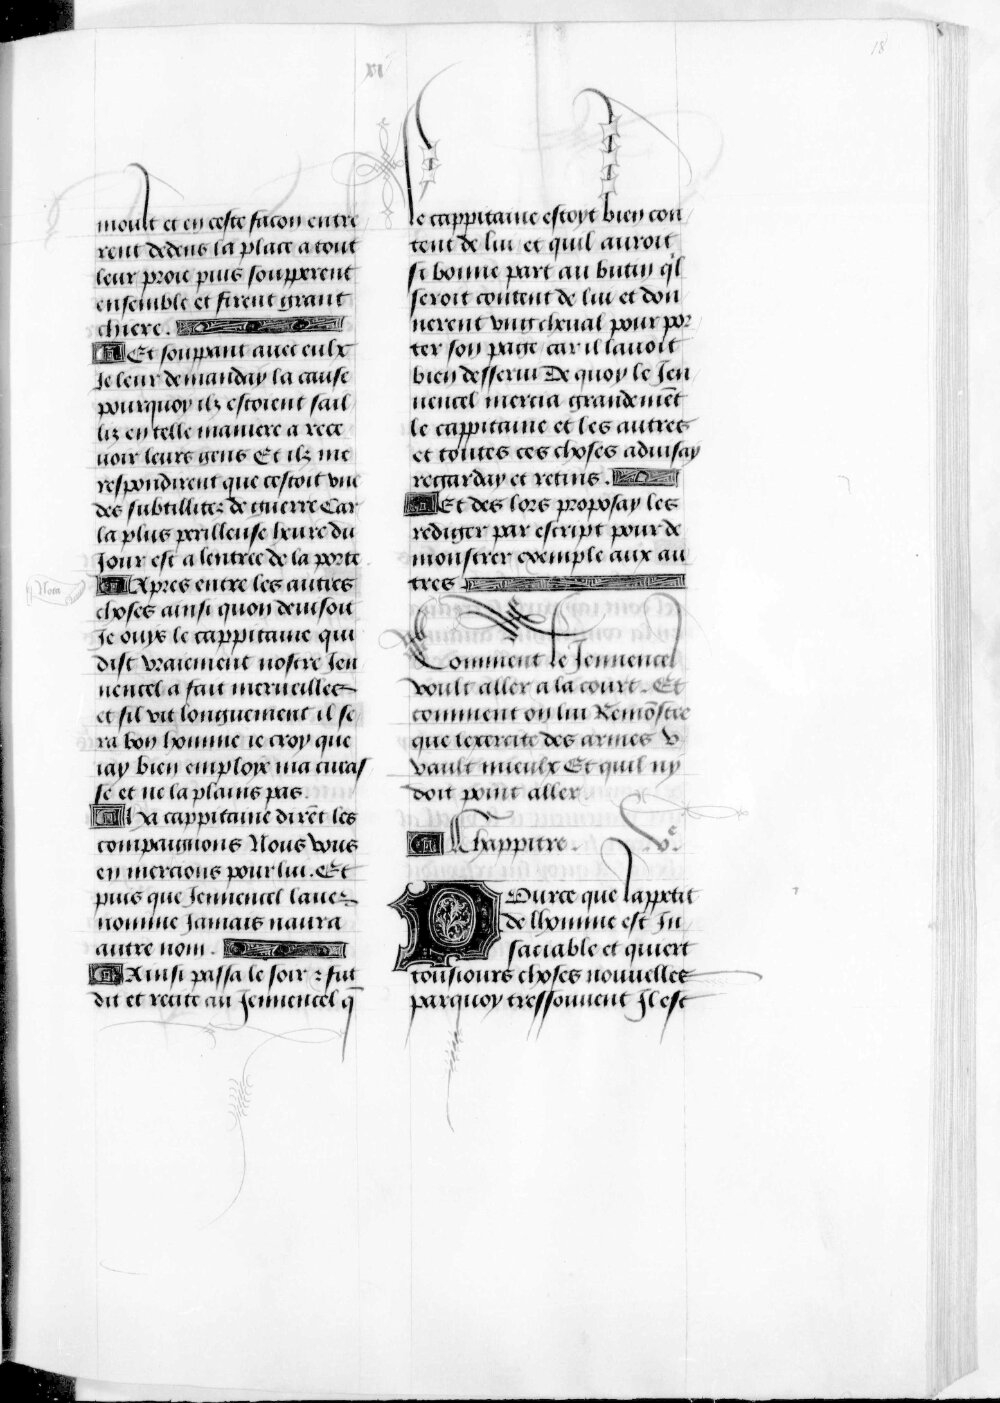 xi
18
moult et en ceste facon entre
rent dedens la place a tout
leur proie puis soupperent
ensemble et firent grant
chiere.
Et souppant avec eulx
Je leur demanday la cause
pourquoy ilz estoient sail
liz en telle maniere a rece
voir leurs gens Et ilz me
respondirent que cestoit une
des subtillitez de guerre Car
la plus perilleuse heure du
Jour est a lentree de la porte
Nota
Apres entre les autres
choses ainsi quon devisoit
Je ouys le cappitaine qui
dist vraiement nostre Jen
nencel a fait merveilles
et sil vit longuement il se
ra bon homme ie croy que
iay bien employe ma curas
se et ne la plains pas.
Ha cappitaine dirēt les
compaignons Nous vous
en mercions pour lui. Et
puis que Jennencel lavez
nomme Jamais naura
autre nom.
Ainsi passa le soir z fut
dit et recite au Jennencel q̄
le cappitaine estoyt bien con
tent de lui et quil auroit
si bonne part au butin q'l
seroit content de lui et don
nerent ung cheval pour por
ter son page car il lavoit
bien desservi De quoy le Jen
nencel mercia grandemēt
le cappitaine et les autres
et toutes ces choses advisay
regarday et retins.
Et des lors proposay les
rediger par escript pour de
monstrer exemple aux au
tres
Comment le Jennencel
voult aller a la court. Et
comment on lui Remōstre
que lexercite des armes v
vault mieulx Et quil ny
doit point aller.
Chappitre. v.e
Pource que lappetit
de lhomme est In
saciable et quiert
tousiours choses nouvelles
parquoy tressouvent Il est